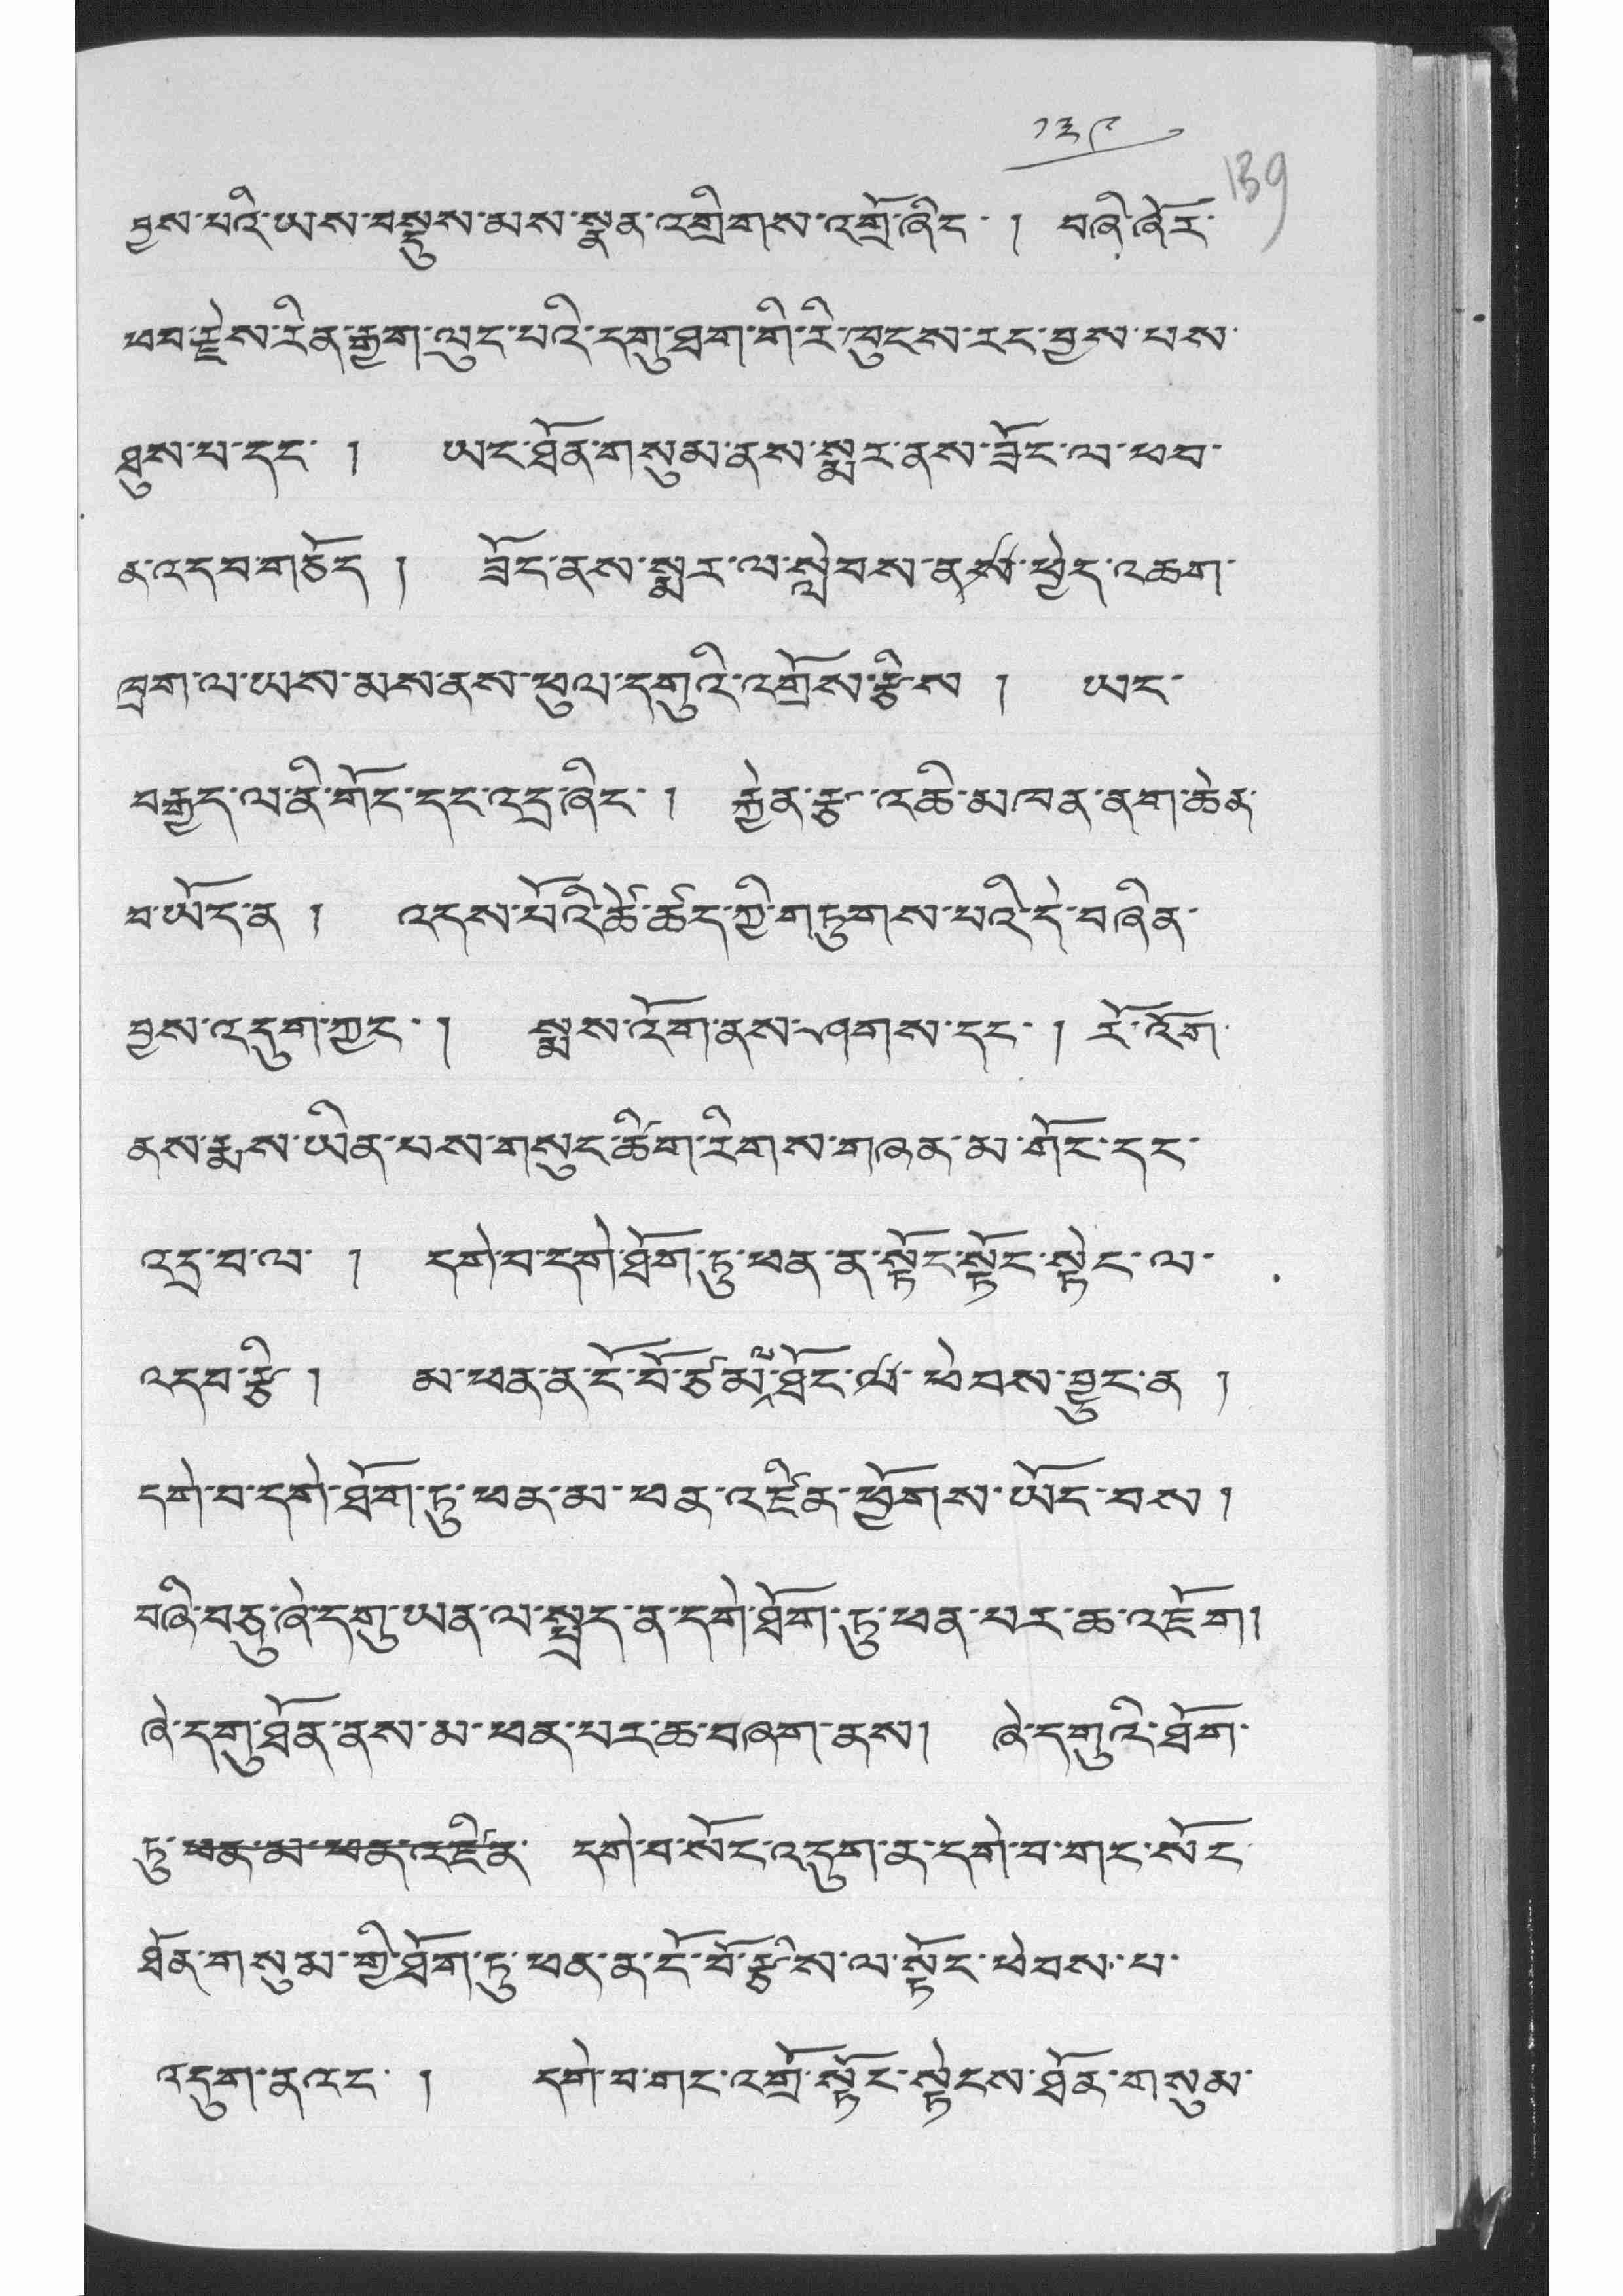 ༡༣༩
139
བྱས་པའི་ཡས་བསྡུས་མས་སྣན་འགྲིགས་འགྲོ་ཞིང་། བཞི་ཞོར་
ཕབ་རྗེས་རིན་རྒྱག་ལུང་པའི་དགུ་ཐག་གི་རི་ཁུངས་རང་བྱས་པས་
ཐུས་པ་དང་། ཡང་ཐོན་གསུམ་ནས་སྨར་ནས་ཟོང་ལ་ཕབ་
ན་འདབ་གཅོད། ཟོང་ནས་སྨར་ལ་སླེབས་ན་ཕྱེད་འཆག་
ཁྲག་ལ་ཡས་མས་ནས་ཕུལ་དགུའི་འགྲོས་རྩིས། ཡང་
བརྒྱད་ལ་ནི་གོང་དང་འདྲ་ཞིང་། རྐྱེན་རྩ་འཆི་མཁན་ནག་ཆེན་
བ་ཡོད་ན། འདས་པོའི་ཚེ་ཚད་ཀྱི་གཏུགས་པའི་དེ་བཞིན་
བྱས་འདུག་ཀྱང་། སྨས་འོག་ནས་ཞགས་དང་། རོ་འོག་
ནས་རྨས་ཡིན་པས་གསུང་ཚིག་རིགས་གཞན་མ་གོང་དང་
འདྲ་བ་ལ། དགེ་བ་དགེ་ཐོག་ཏུ་ཕན་ན་སྟོང་སྟོང་སྟེང་ལ་
འདབ་རྩི། མ་ཕན་ན་ངོ་བོ་ཙམ་ལ་ཐོང་ཕེབས་བྱུང་ན།
དགེ་བ་དགེ་ཐོག་ཏུ་ཕན་མ་ཕན་འཛིན་ཕྱོགས་ཡོད་པས།
བཞི་བཅུ་ཞེ་དགུ་ཡན་ལ་སྤྲད་ན་དགེ་ཐོག་ཏུ་ཕན་པར་ཆ་འཇོག།
ཞེ་དགུ་ཐོན་ནས་མ་ཕན་པར་ཆ་བཞག་ནས། ཞེ་དགུའི་ཐོག་
ཏུ་ཕན་མ་ཕན་འཛིན་ དགེ་བ་སོང་འདུག་ན་དགེ་བ་གང་སོང་
ཐོན་གསུམ་གྱི་ཐོག་ཏུ་ཕན་ན་ངོ་བོ་རྩིས་ལ་སྟོང་ཕེབས་པ་
འདུག་ནའང་། དགེ་བ་གང་འགྲོ་སྟོང་སྟེངས་ཐོན་གསུམ་